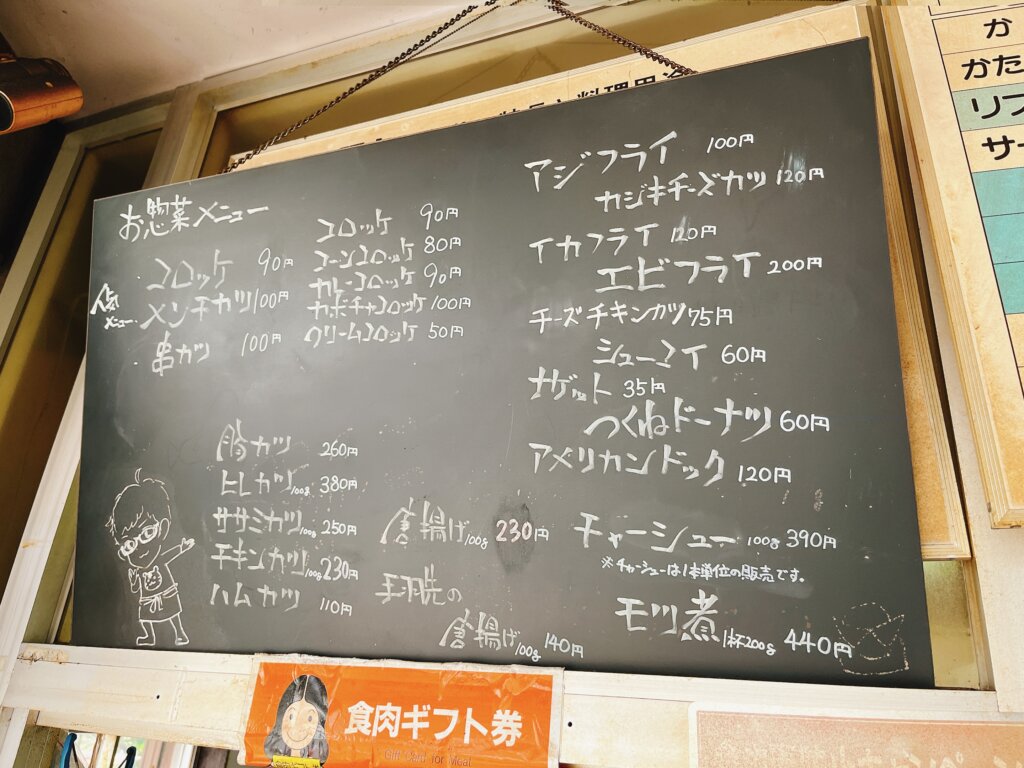 お惣菜メニュー
コロッケ 90円
メンチカツ 100円
串カツ 100円
メニュー
コロッケ 90円
コーンコロッケ 80円
カレーコロッケ 90円
カボチャコロッケ 100円
クリームコロッケ 50円
カツ 260円
ヒレカツ100g 380円
ササミカツ100g 250円
チキンカツ100g 230円
ハムカツ 110円
唐揚げ100g 230円
手羽先の
唐揚げ100g 140円
アジフライ 100円
カジキチーズカツ 120円
イカフライ 120円
エビフライ 200円
チーズチキンカツ 75円
シューマイ 60円
ナゲット 35円
つくねドーナツ 60円
アメリカンドック 120円
チャーシュー 100g 390円
※チャーシューは1本単位の販売です。
モツ煮 1杯200g 440円
食肉ギフト券
Gift Card for Meat
か
かた
リブ
サー